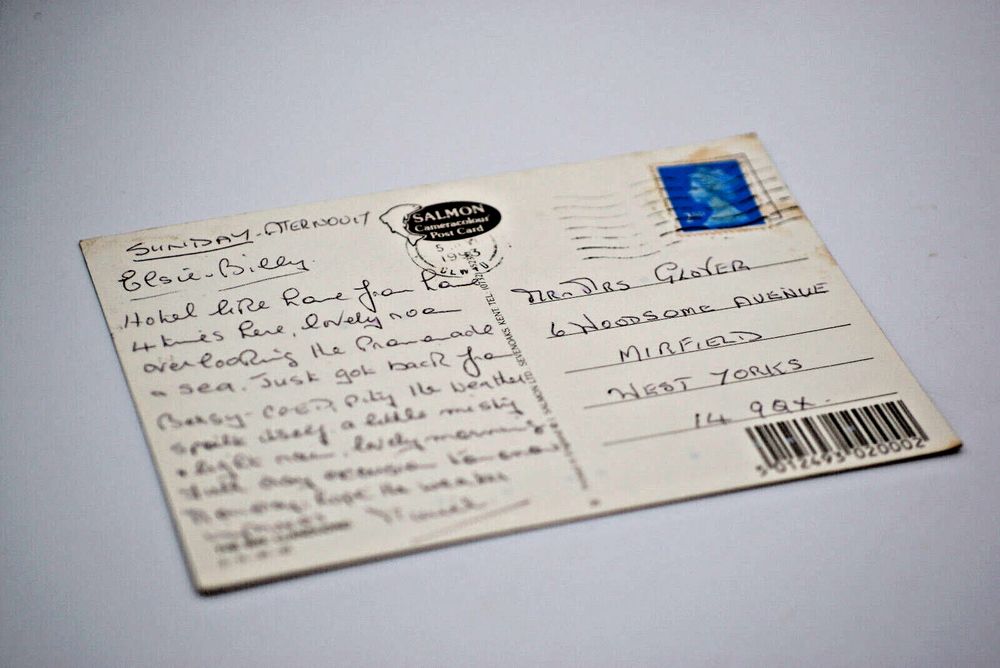 SUNDAY - ATERNOUIT
Elsie - Billy
Hotel like have from home
4 times here, lovely room
overlooking the Promenade
& sea. Just got back from
Betsy-coed, pity the weather
spoilt itself a little misty
& light rain, lovely morning
full day excursion tomorrow
Monday, hope the weather
SALMON
Cameracolour
Post Card
5
1993
© J. SALMON LTD SEVENOAKS KENT TEL (0732)
MR-MRS GLOVER
6 WOODSOME AVENUE
MIRFIELD
WEST YORKS
14 9QX.
5 012493 020002